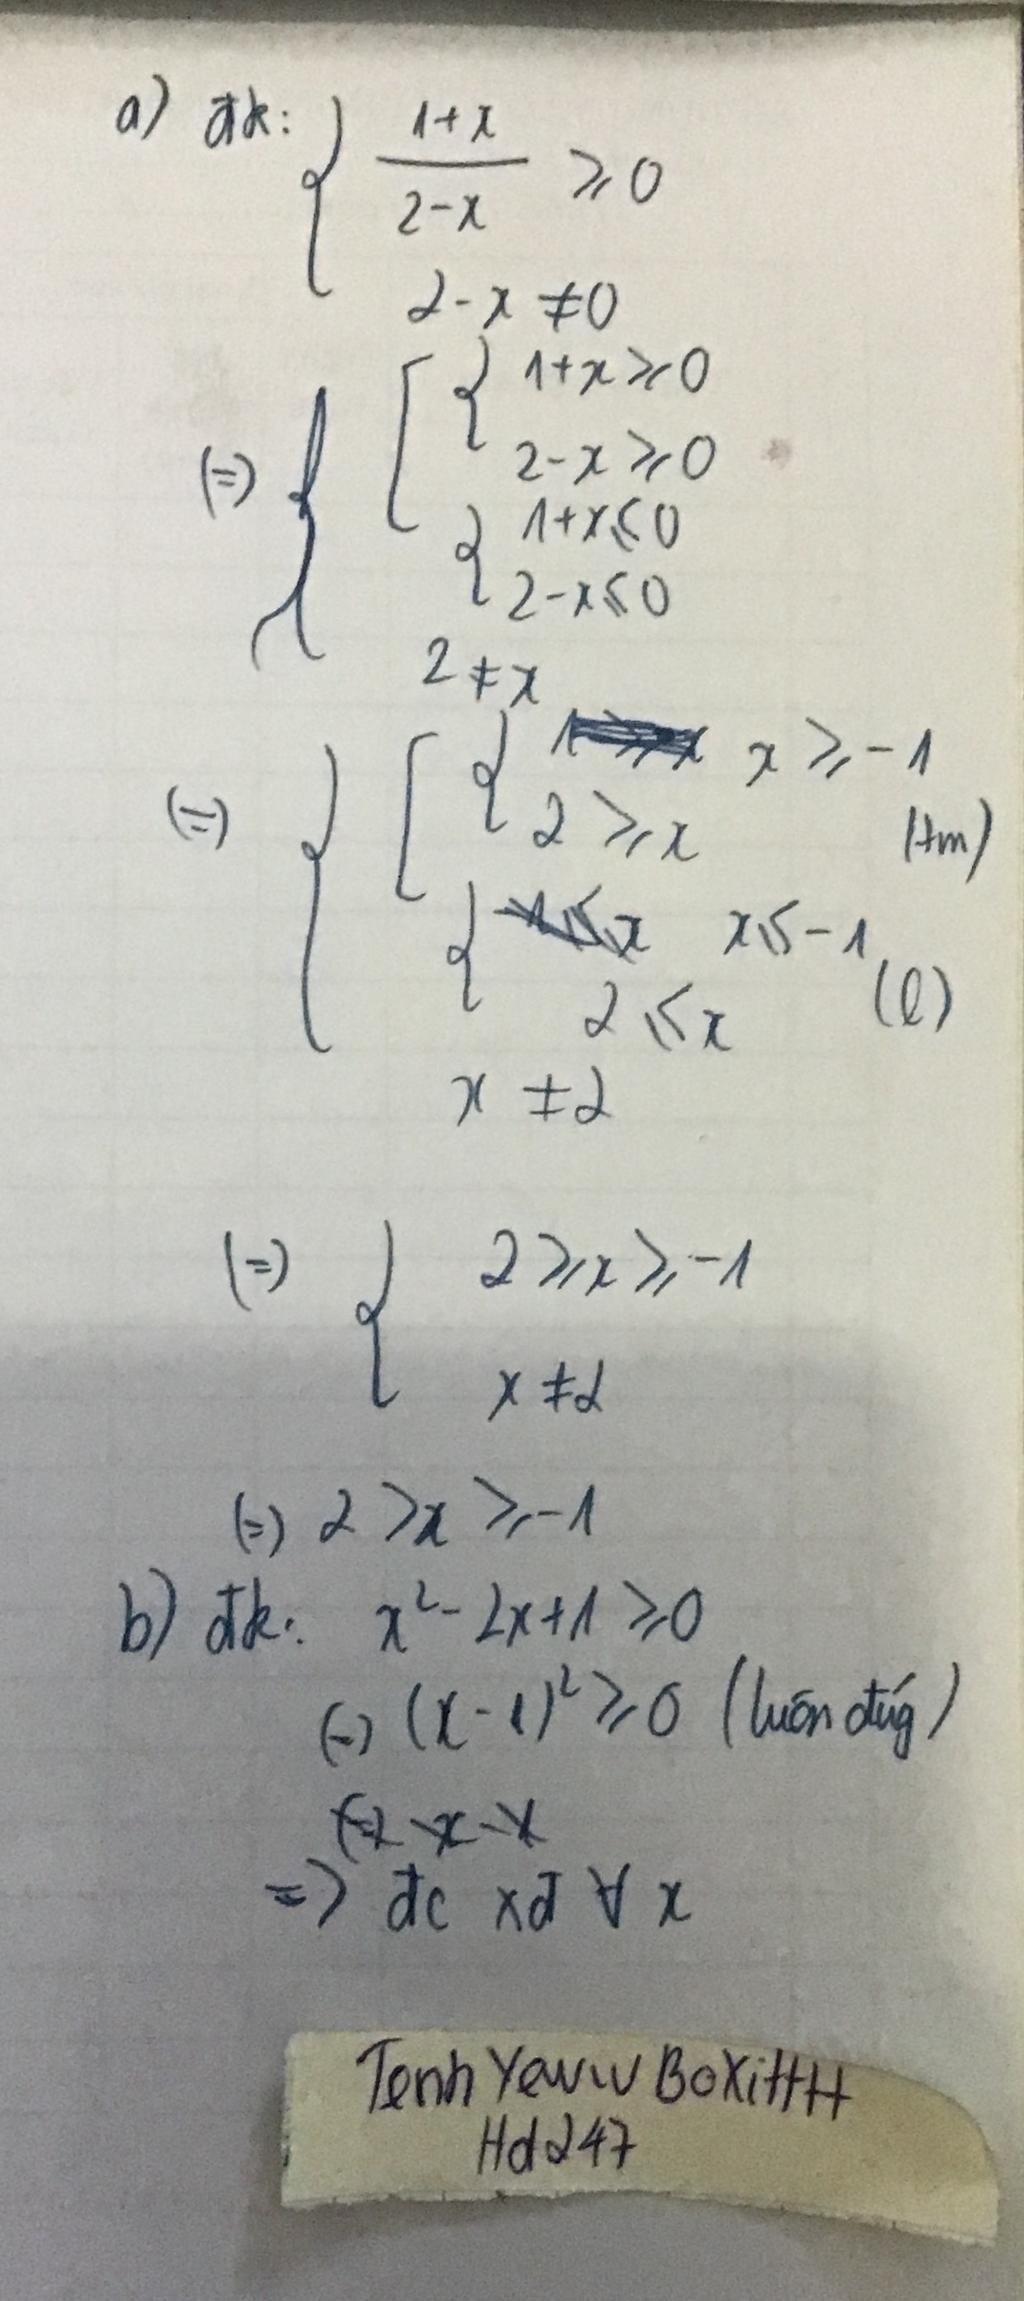 a) đk: { 1+x / 2-x ≥ 0
2-x ≠ 0
(=) { [ { 1+x ≥ 0
2-x ≥ 0
{ 1+x ≤ 0
2-x ≤ 0
2 ≠ x
(=) { [ { x ≥ -1
2 ≥ x (tm)
{ x ≤ -1
2 ≤ x (l)
x ≠ 2
(=) { 2 ≥ x ≥ -1
x ≠ 2
(=) 2 > x ≥ -1
b) đk: x² - 2x + 1 ≥ 0
(=) (x - 1)² ≥ 0 (luôn đúg)
=) đc xđ ∀ x
Hd247